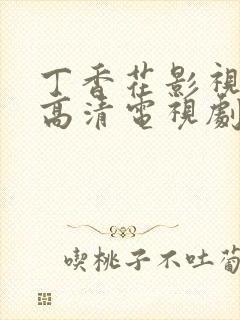 丁香花影視
高清電視劇
喫桃子不吐葡